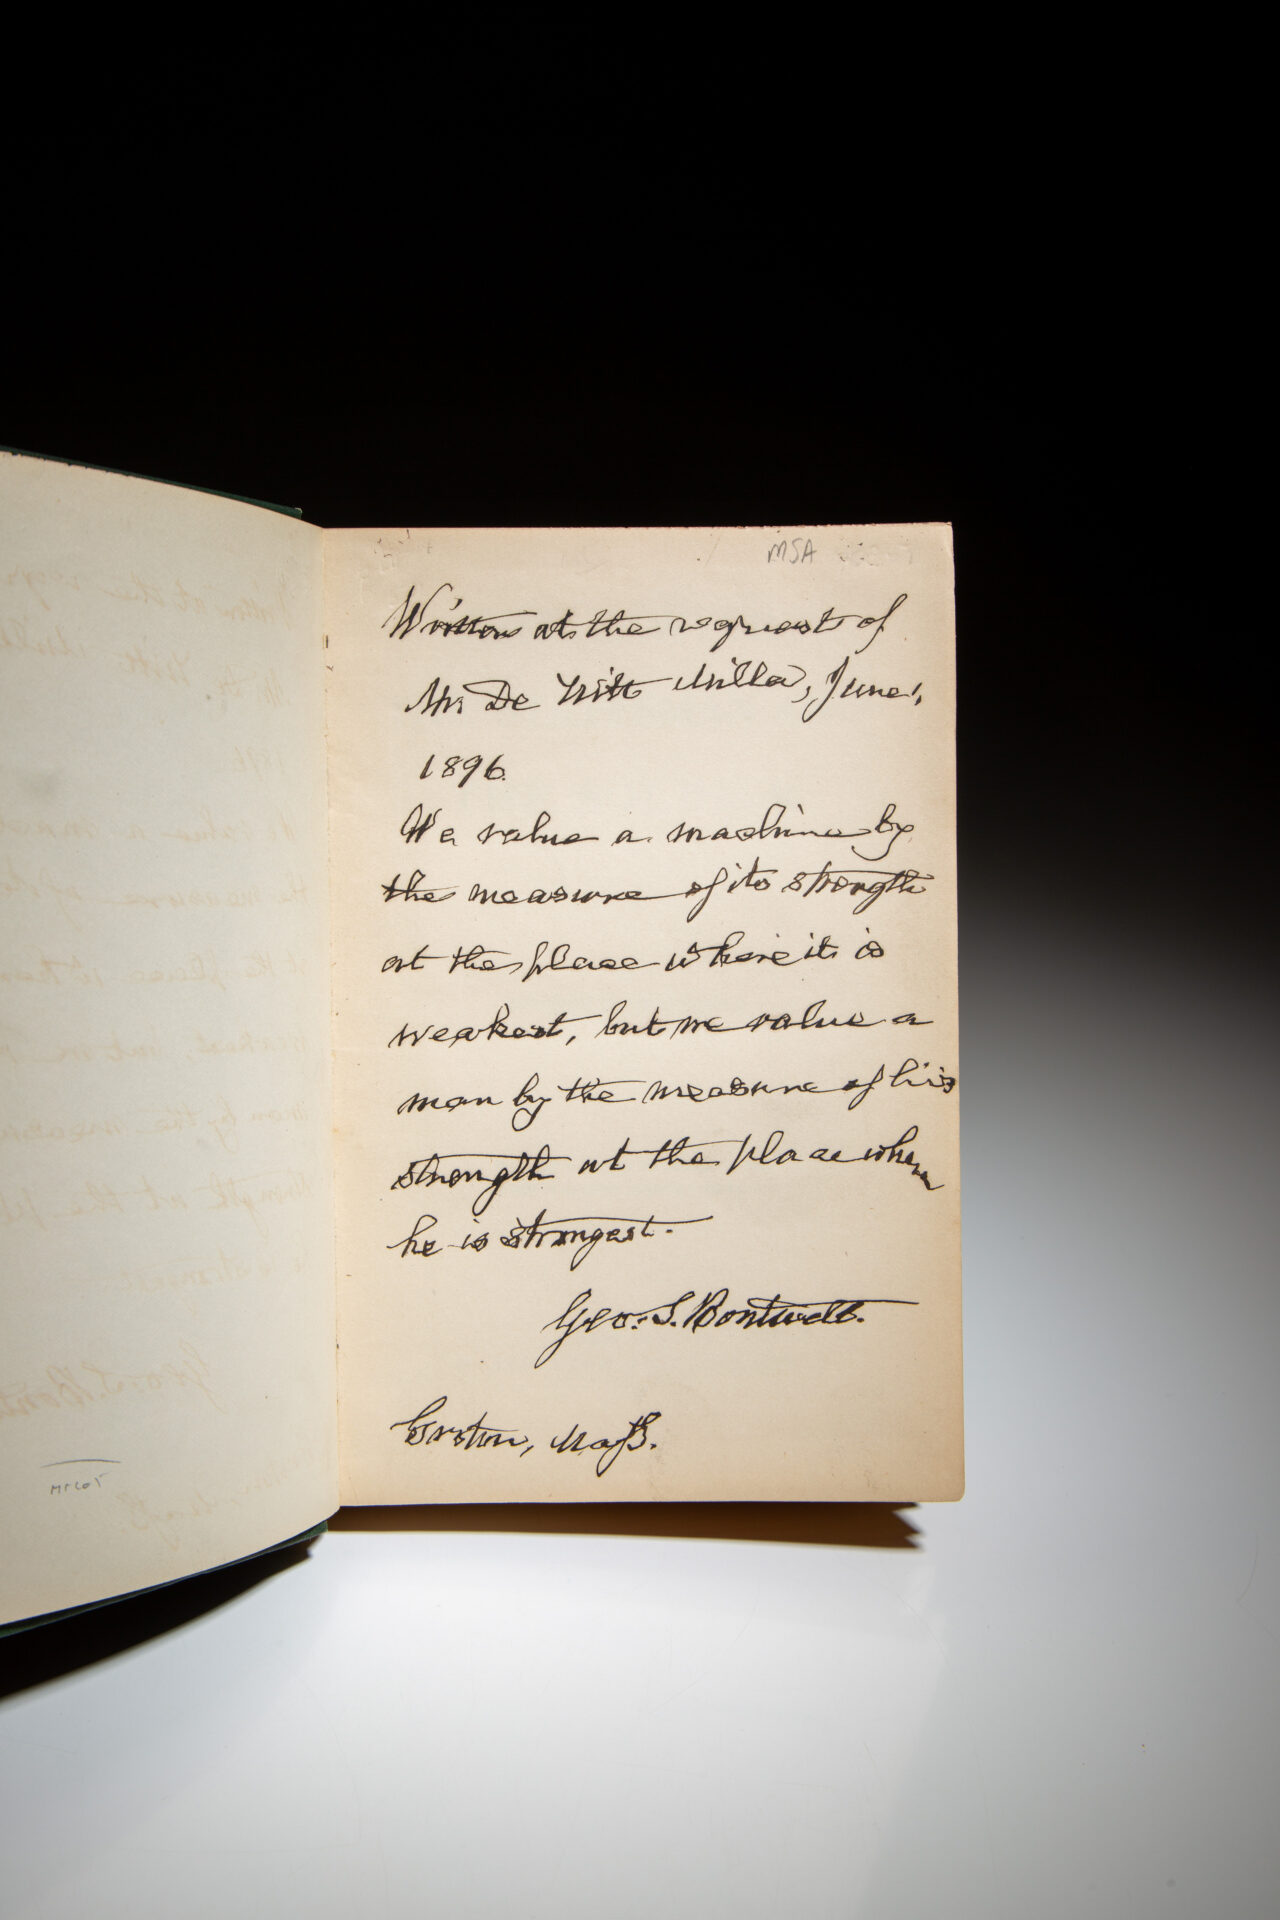 MSA
Written at the request of
Mr De Witt Miller, June 1,
1896.
We value a machine by
the measure of its strength
at the place where it is
weakest, but we value a
man by the measure of his
strength at the place where
he is strongest.
Geo. S. Boutwell.
Groton, Mass.